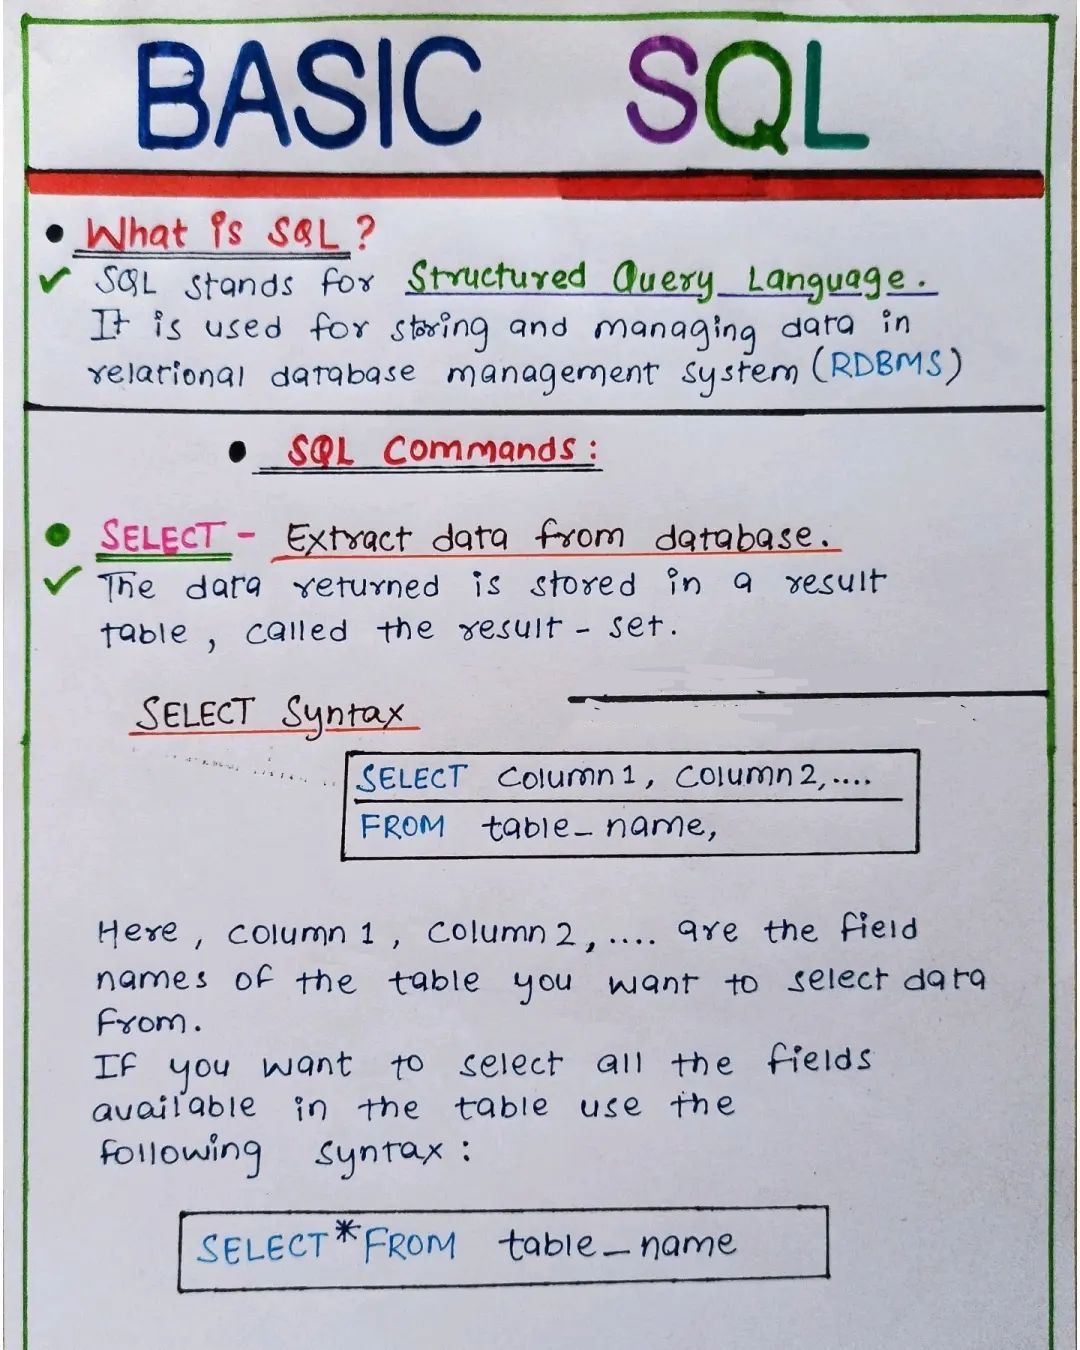 BASIC SQL
• What is SQL ?
✓ SQL stands for Structured Query Language.
It is used for storing and managing data in
relational database management system (RDBMS)
• SQL Commands :
• SELECT - Extract data from database.
✓ The data returned is stored in a result
table , called the result - set.
SELECT Syntax
SELECT Column 1, Column 2, ....
FROM table_name,
Here , column 1 , column 2 , .... are the field
names of the table you want to select data
from.
If you want to select all the fields
available in the table use the
following syntax :
SELECT * FROM table_name